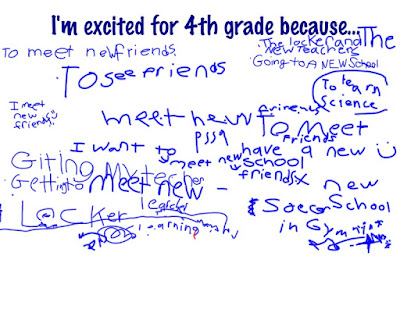 I'm excited for 4th grade because...
To meet newfriends.
The locker and The
new teachers
Going to A NEW School
To see Friends
To learn
science
I meet
new
friends.
meet new
friends
To Meet
Friends
I want to have a new
meet new school
friends
Giting My teacher
Getting to meet new
new
LOCKER
teacher
learning
Soccer School
in Gym